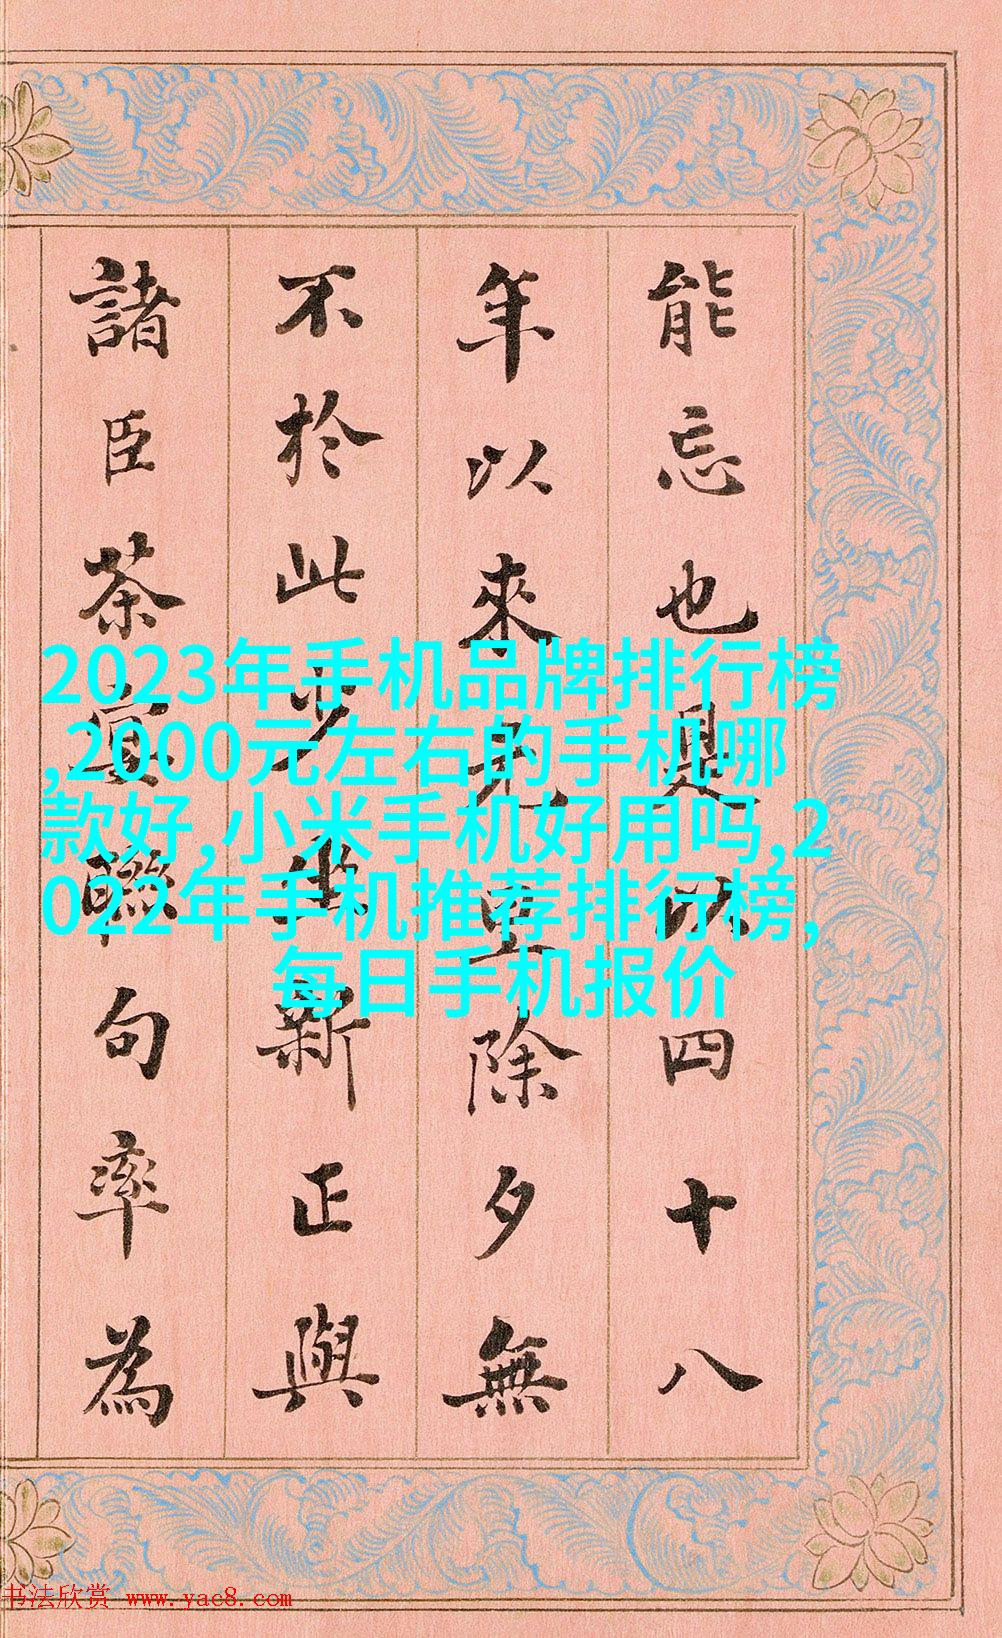 能忘也是以四十八
年以來 除夕無
不於此 新正與
諸臣茶宴聯句率為
2023年手机品牌排行榜
,2000元左右的手机哪
款好,小米手机好用吗,2
022年手机推荐排行榜,
每日手机报价
书法欣赏 www.yac8.com